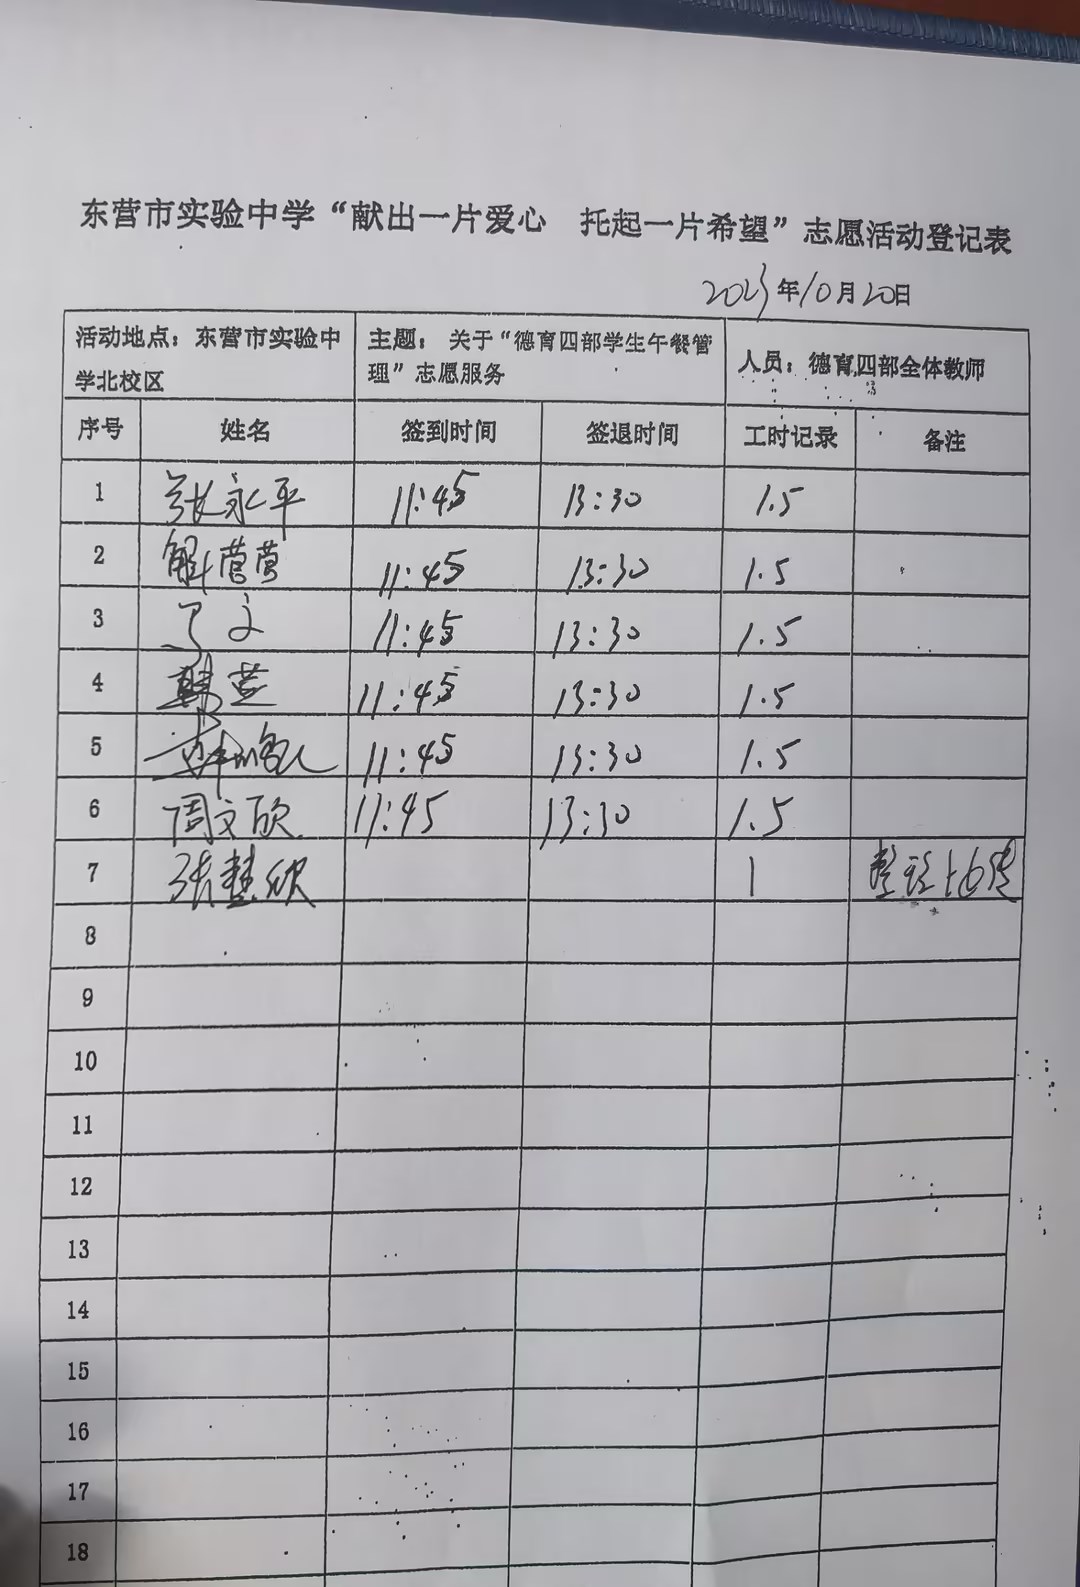 东营市实验中学“献出一片爱心 托起一片希望”志愿活动登记表
2023年10月20日
活动地点：东营市实验中学北校区 主题：关于“德育四部学生午餐管理”志愿服务 人员：德育四部全体教师
序号 姓名 签到时间 签退时间 工时记录 备注
1 张永平 11:45 13:30 1.5
2 解莺莺 11:45 13:30 1.5
3 丁文 11:45 13:30 1.5
4 韩芸 11:45 13:30 1.5
5 11:45 13:30 1.5
6 周文欣 11:45 13:30 1.5
7 张慧欣 1 整理上传
8
9
10
11
12
13
14
15
16
17
18